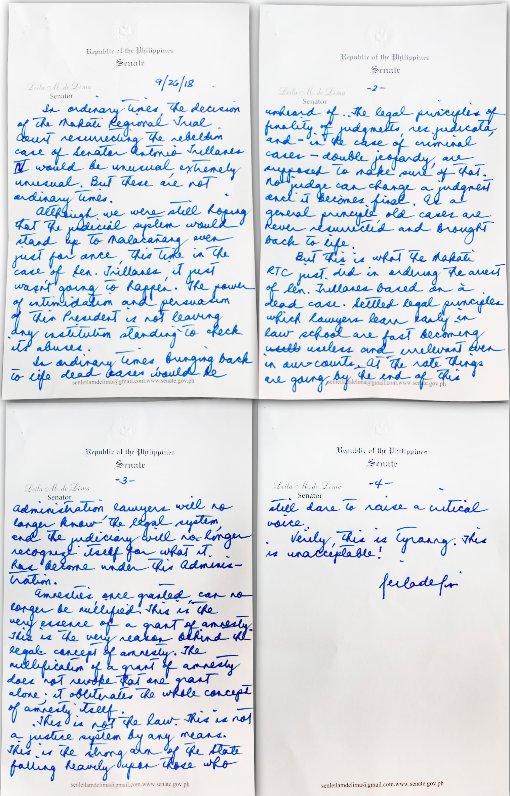 Republic of the Philippines
Senate
Leila M. de Lima
Senator
9/26/18
In ordinary times, the decision
of the Makati Regional Trial
Court resurrecting the rebellion
case of Senator Antonio Trillanes
IV would be unusual, extremely
unusual. But these are not
ordinary times.
Although we were still hoping
that the judicial system would
stand up to Malacañang even
just for once, this time in the
case of Sen. Trillanes, it just
wasn't going to happen. The power
of intimidation and persuasion
of this President is not leaving
any institution standing to check
its abuses.
In ordinary times bringing back
to life dead cases would be
senleilamdelima@gmail.com.www.senate.gov.ph
Republic of the Philippines
Senate
Leila M. de Lima
Senator
-2-
unheard of. The legal principles of
finality of judgments, res judicata,
and - in the case of criminal
cases - double jeopardy, are
supposed to make sure of that.
No judge can change a judgment
once it becomes final. As a
general principle old cases are
never resurrected and brought
back to life.
But this is what the Makati
RTC just did in ordering the arrest
of Sen. Trillanes based on a
dead case. Settled legal principles
which lawyers learn early in
law school are fast becoming
useless and irrelevant even
in our courts. At the rate things
are going by the end of this
senleilamdelima@gmail.com.www.senate.gov.ph
Republic of the Philippines
Senate
Leila M. de Lima
Senator
-3-
administration lawyers will no
longer know the legal system,
and the judiciary will no longer
recognize itself for what it
has become under this Adminis-
tration.
Amnesties once granted, can no
longer be nullified. This is the
very essence of a grant of amnesty.
This is the very reason behind the
legal concept of amnesty. The
nullification of a grant of amnesty
does not revoke that one grant
alone; it obliterates the whole concept
of amnesty itself.
This is not the law. This is not
a justice system by any means.
This is the strong arm of the State
falling heavily upon those who
senleilamdelima@gmail.com.www.senate.gov.ph
Republic of the Philippines
Senate
Leila M. de Lima
Senator
-4-
still dare to raise a critical
voice.
Verily, this is tyranny. This
is unacceptable!
senleilamdelima@gmail.com.www.senate.gov.ph